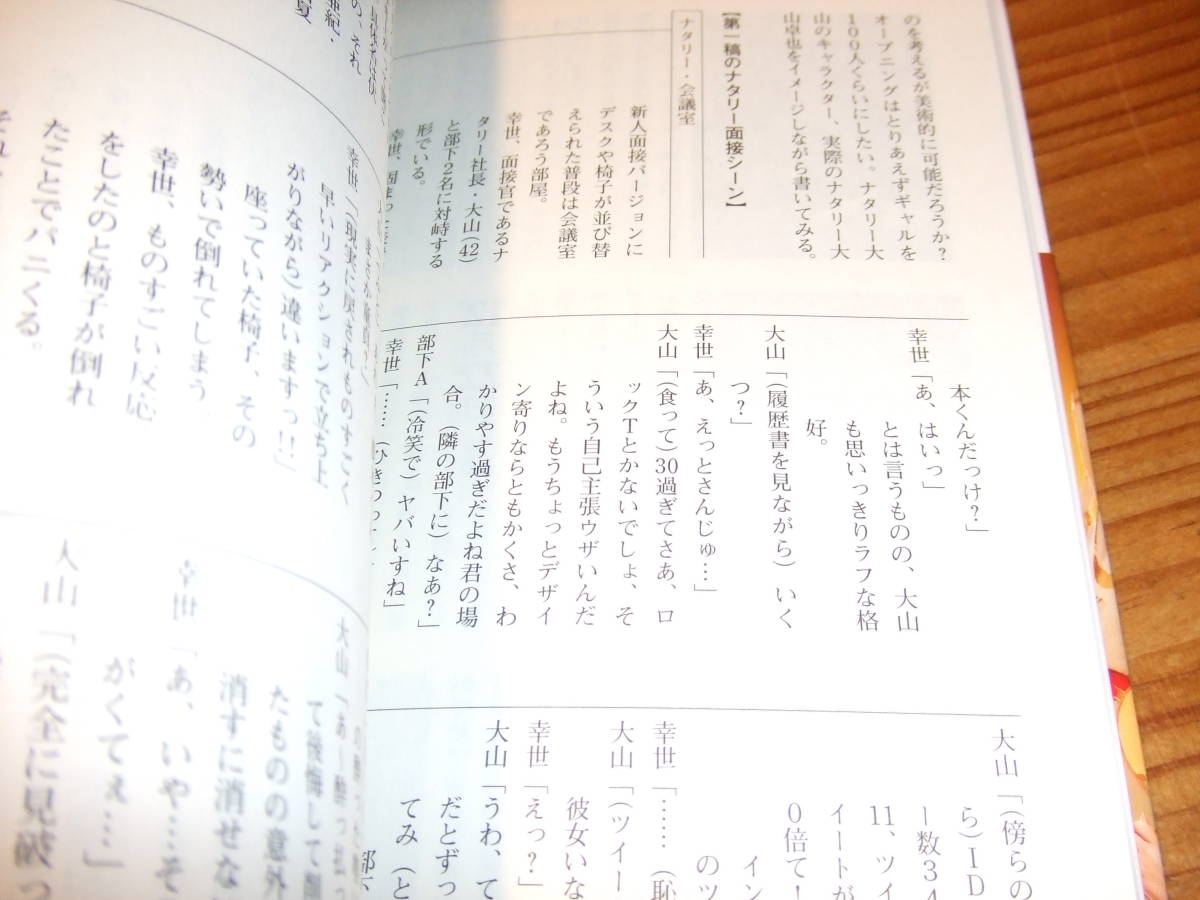 のを考えるが美術的に可能だろうか？
オープニングはとりあえずギャルを
100人くらいにしたい。ナタリー大
山のキャラクター、実際のナタリー大
山卓也をイメージしながら書いてみる。
【第一稿のナタリー面接シーン】
ナタリー・会議室
新人面接バージョンに
デスクや椅子が並び替
えられた普段は会議室
であろう部屋。
幸世、面接官であるナ
タリー社長・大山（42）
と部下2名に対峙する
形でいる。
幸世、固まった
本くんだっけ？」
幸世「あ、はいっ」
とは言うものの、大山
も思いっきりラフな格
好。
大山「（履歴書を見ながら）いく
つ？」
幸世「あ、えっとさんじゅ…」
大山「（食って）30過ぎてさあ、ロ
ックTとかないでしょ、そ
ういう自己主張ウザいんだ
よね。もうちょっとデザイ
ン寄りならともかくさ、わ
かりやす過ぎだよね君の場
合。（隣の部下に）なあ？」
部下A「（冷笑で）ヤバいすね」
幸世「……（ひきつっ
大山「（傍らの
ら）ID
ー数34
11、ツイ
イートが
0倍て！
イン
のツ
幸世「……（恥
大山「（ツイー
彼女いな
幸世「えっ？」
大山「うわ、て
だとずっ
てみ（と
部下
亜紀・
夏
の、それ
幸世「（現実に戻されものすごく
早いリアクションで立ち上
がりながら）違いますっ!!」
座っていた椅子、その
勢いで倒れてしまう。
幸世、ものすごい反応
をしたのと椅子が倒れ
たことでパニくる。
それ
大山「あー酔っ払っ
て後悔して顔
たものの意外
消すに消せな
幸世「あ、いや…そ
がくてぇ…」
大山「（完全に見破っ